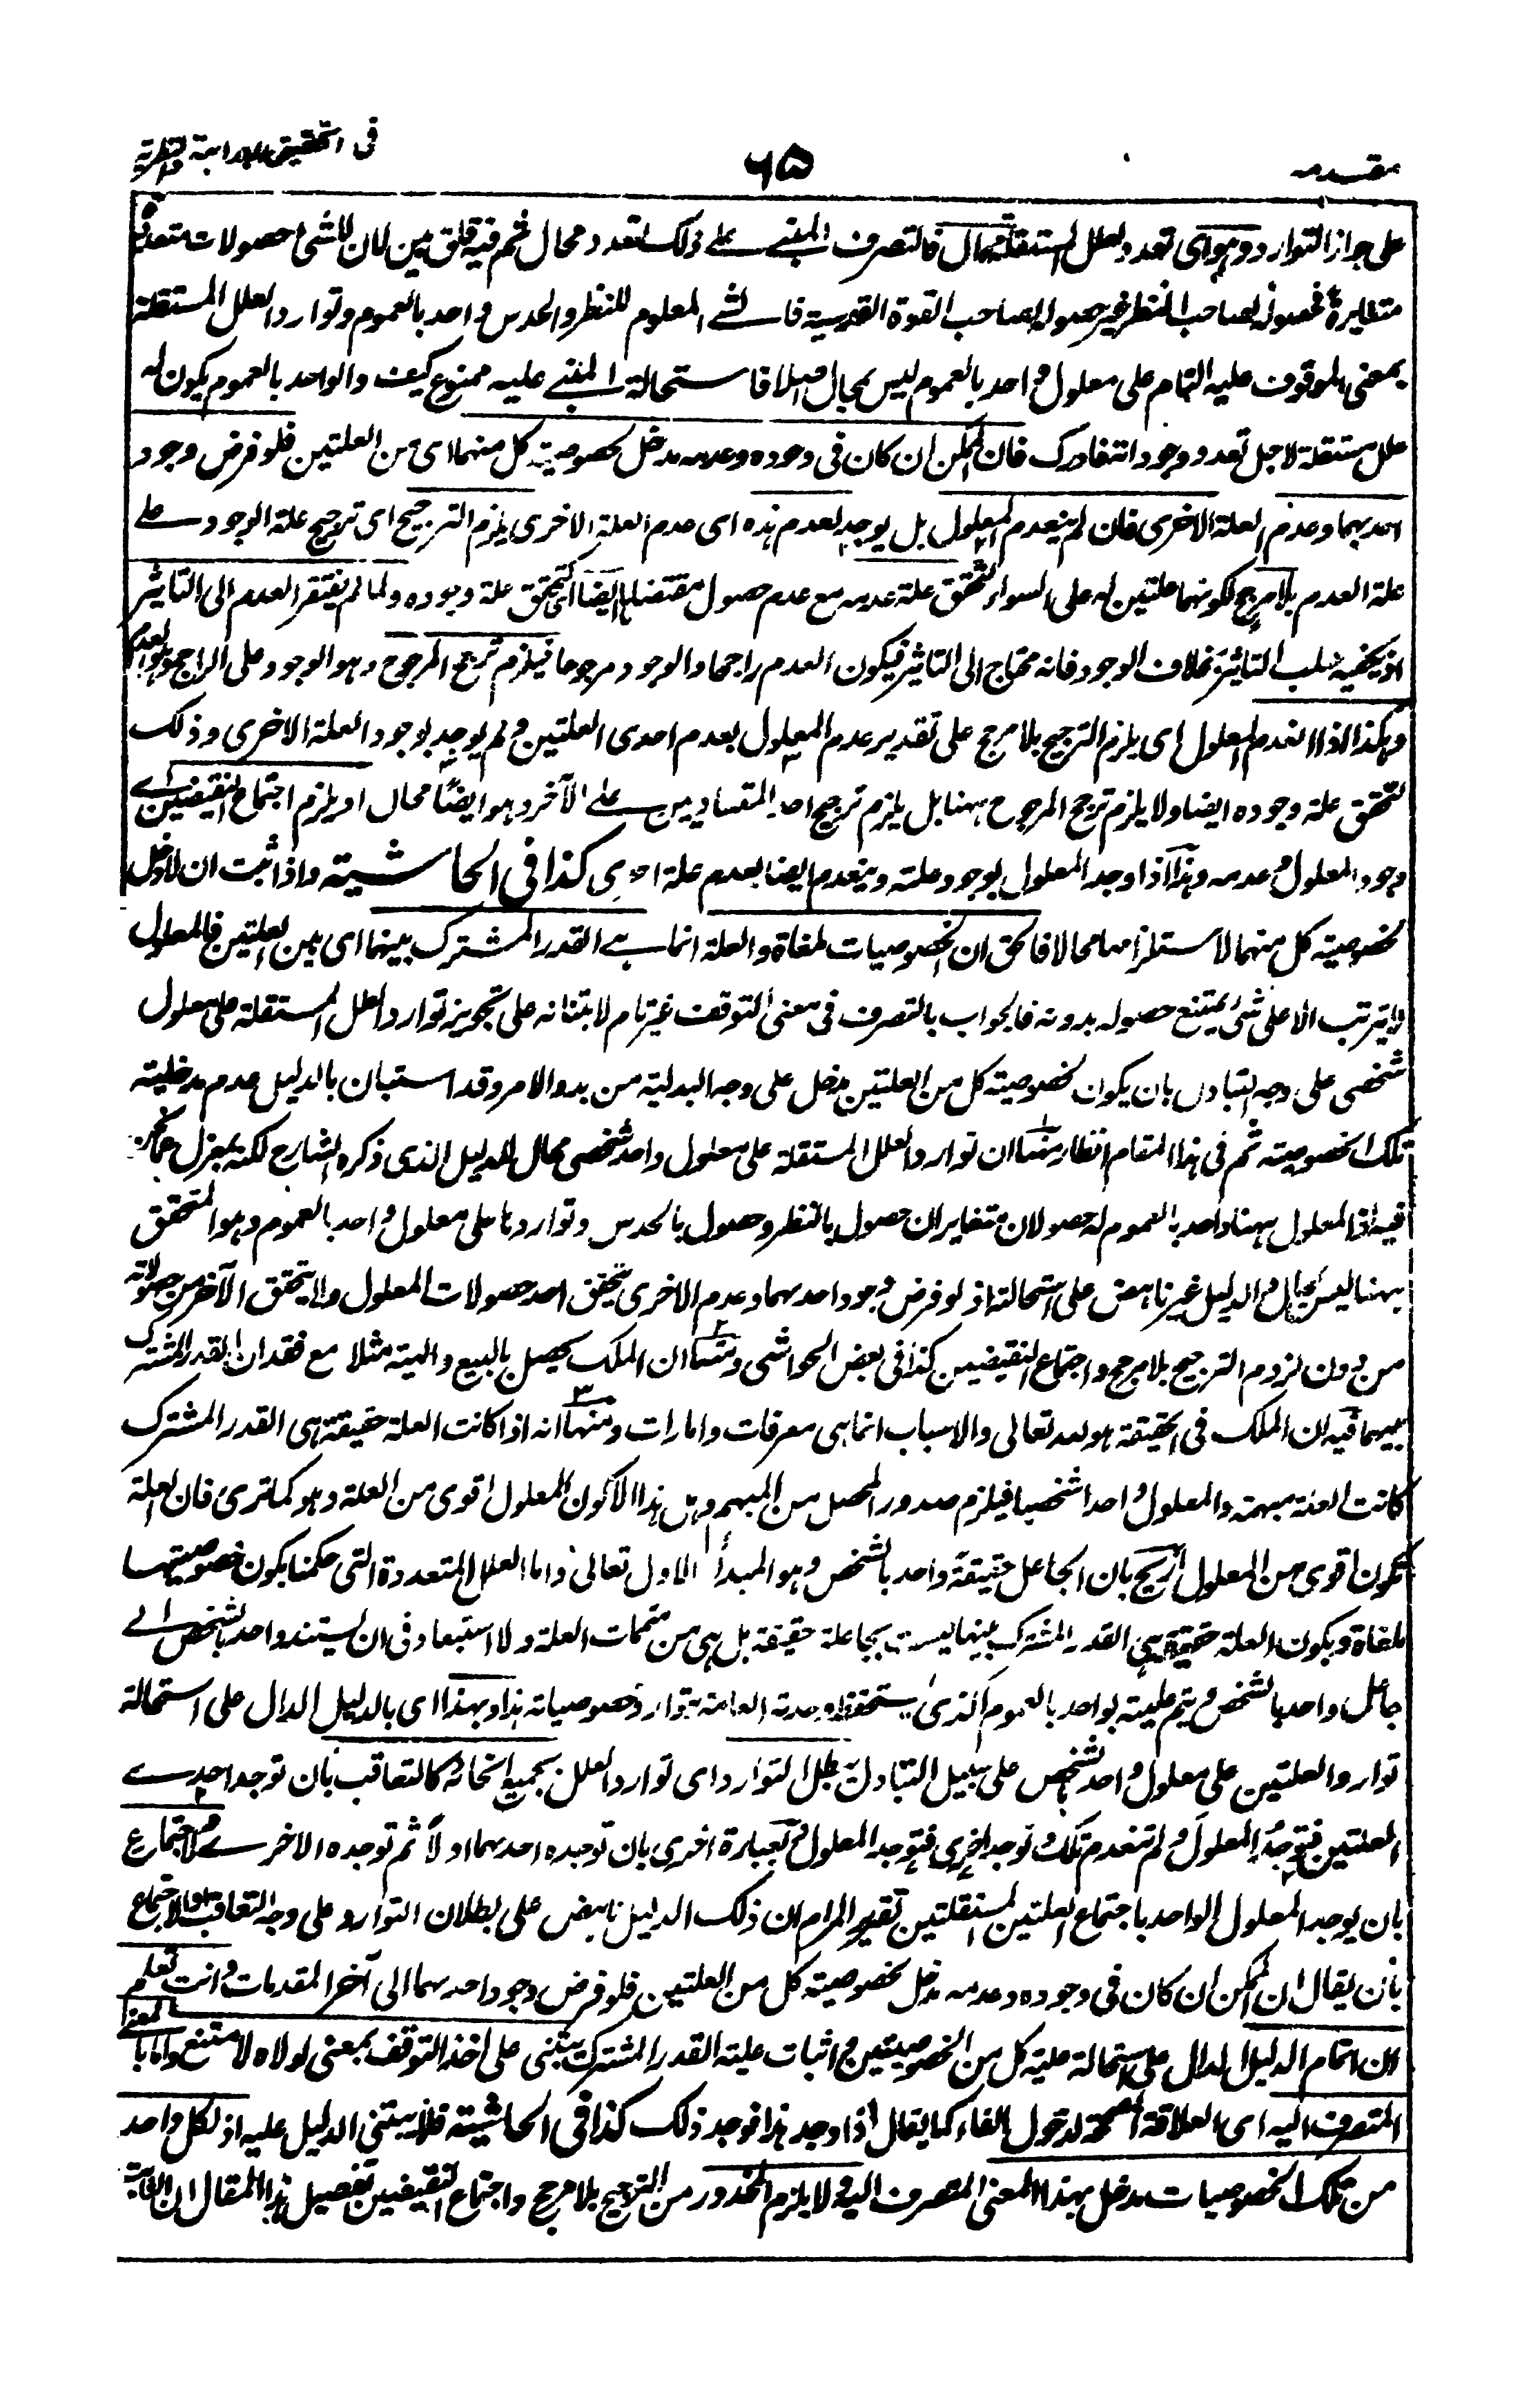 مقدمه
۶۵
فى تحقيق البداهة والنظرية
على جواز التوارد وهو اى تعدد العلل المستقلة محال فالتصرف المبنى على ذلك التعدد محال ثم فيه قلق مبين لان للشئ حصولات متعددة
متغايرة فحصوله لصاحب النظر غير حصوله لصاحب القوة القدسية فالشئ المعلوم للنظر والحدس واحد بالعموم وتوارد العلل المستقلة
بمعنى الموقوف عليه التام على معلول واحد بالعموم ليس بمحال اصلا فاستحالة المبنى عليه ممنوع كيف والواحد بالعموم يكون له
علل مستقلة لاجل تعدد وجود اتفادرك فان الممكن ان كان فى وجوده وعدمه مدخل لخصوصية كل منهما اى من العلتين فلو فرض وجود
احدهما وعدم العلة الاخرى فان لم ينعدم المعلول بل يوجد لعدم هذه اى عدم العلة الاخرى يلزم الترجيح اى ترجيح علة الوجود على
علة العدم بلا مرجح لكونهما علتين له على السواء لتحقق علة عدمه مع عدم حصول مقتضاها ايضا اى كتحقق علة وجوده ولما لم يفتقر العدم الى التاثير
اذ يكفيه سلب التاثير بخلاف الوجود فانه محتاج الى التاثير فيكون العدم راجحا والوجود مرجوحا فيلزم ترجيح المرجوح وهو الوجود على الراجح وهو العدم
وهكذا اذا انعدم المعلول اى يلزم الترجيح بلا مرجح على تقدير عدم المعلول بعدم احدى العلتين ولم يوجد بوجود العلة الاخرى وذلك
لتحقق علة وجوده ايضا ولا يلزم ترجيح المرجوح ههنا بل يلزم ترجيح احد المتساويين على الآخر وهو ايضا محال او يلزم اجتماع النقيضين اى
وجود المعلول وعدمه وهذا اذا وجد المعلول بوجود علته وينعدم ايضا بعدم علة اخرى كذا فى الحاشية واذا ثبت ان لا دخل
لخصوصية كل منهما لاستلزامها محالا فالحق ان الخصوصيات ملغاة والعلة انما هى القدر المشترك بينهما اى بين العلتين فالمعلول
لا يترتب الا على شئ يمتنع حصوله بدونه فالجواب بالتصرف فى معنى التوقف غير تام لابتنائه على تجويز توارد العلل المستقلة على معلول
شخصى على وجه التبادل بان يكون لخصوصية كل من العلتين مدخل على وجه البدلية من بدو الامر وقد استبان بالدليل عدم مدخلية
تلك الخصوصية ثم فى هذا المقام انظار منها ان توارد العلل المستقلة على معلول واحد شخصى محال للدليل الذى ذكره الشارح لكنه بمعزل عما نحن
فيه اذ المعلول ههنا واحد بالعموم له حصولان متغايران حصول بالنظر وحصول بالحدس وتواردها على معلول واحد بالعموم وهو المتحقق
ههنا ليس بمحال والدليل غير ناهض على استحالته اذ لو فرض وجود احدهما وعدم الاخرى يتحقق احد حصولات المعلول ولا يتحقق الآخر من حصولاته
من دون لزوم الترجيح بلا مرجح واجتماع النقيضين كذا فى بعض الحواشى ومنها ان الملك يحصل بالبيع والهبة مثلا مع فقدان القدر المشترك
بينهما فيه ان الملك فى الحقيقة هو لله تعالى والاسباب انما هى معرفات وامارات ومنها انه اذا كانت العلة حقيقة هى القدر المشترك
كانت العلة مبهمة والمعلول واحدا شخصيا فيلزم صدور المحصل من المبهم وهل هذا الا كون المعلول اقوى من العلة وهو كما ترى فان العلة
تكون اقوى من المعلول ازيح بان الجاعل حقيقة واحد بالشخص وهو المبدأ الاول تعالى واما العلل المتعددة التى حكمنا بكون خصوصيتها
ملغاة وبكون العلة حقيقة هى القدر المشترك بينها ليست بجاعلة حقيقة بل هى من متممات العلة ولا استبعاد فى ان يستند واحد بالشخص الى
جاعل واحد بالشخص ويتم عليته بواحد بالعموم الذى يستحفظ وحدته العامة بتوارد خصوصياته هذا وبهذا اى بالدليل الدال على استحالة
توارد العلتين على معلول واحد شخصى على سبيل التبادل يبطل التوارد اى توارد العلل بجميع انحائه كالتعاقب بان توجد احدى
العلتين فتوجد المعلول ولم تنعدم تلك وتوجد اخرى فتوجد المعلول وبعبارة اخرى بان توجده احدهما اولاً ثم توجده الاخرى والاجتماع
بان يوجد المعلول الواحد باجتماع العلتين المستقلتين تقرير المرام ان ذلك الدليل ناهض على بطلان التوارد على وجه التعاقب والاجتماع
بان يقال ان الممكن ان كان فى وجوده وعدمه مدخل لخصوصية كل من العلتين فلو فرض وجود احدهما الى آخر المقدمات وانت تعلم
ان اتمام الدليل الدال على استحالة علية كل من الخصوصيتين واثبات علية القدر المشترك يبتنى على اخذ التوقف بمعنى لولاه لامتنع واما بالمعنى
المتصرف اليه اى العلاقة المصححة لدخول الفاء كما يقال اذا وجد هذا فوجد ذلك كذا فى الحاشية فلا يبتنى الدليل عليه اذ لكل واحد
من تلك الخصوصيات مدخل بهذا المعنى المتصرف اليه ولا يلزم المحذور من الترجيح بلا مرجح واجتماع النقيضين تفصيل هذا المقال ان الغاية